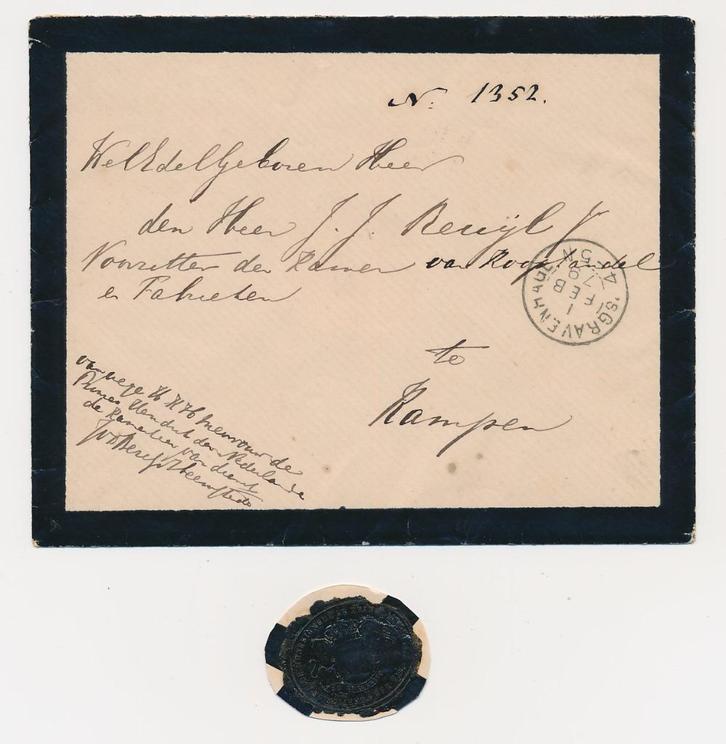 No: 1352.
WelEdelGeboren Heer
den Heer J. J. Beuijl Jr
Voorzitter der Kamer van Koophandel
en Fabrieken
te
Kampen
'SGRAVENHAGE
1
FEB
79
4-5N
vanwege H K H Mevrouw de
Prinses Hendrik der Nederlanden
de Kamerheer van dienst
Heemstede